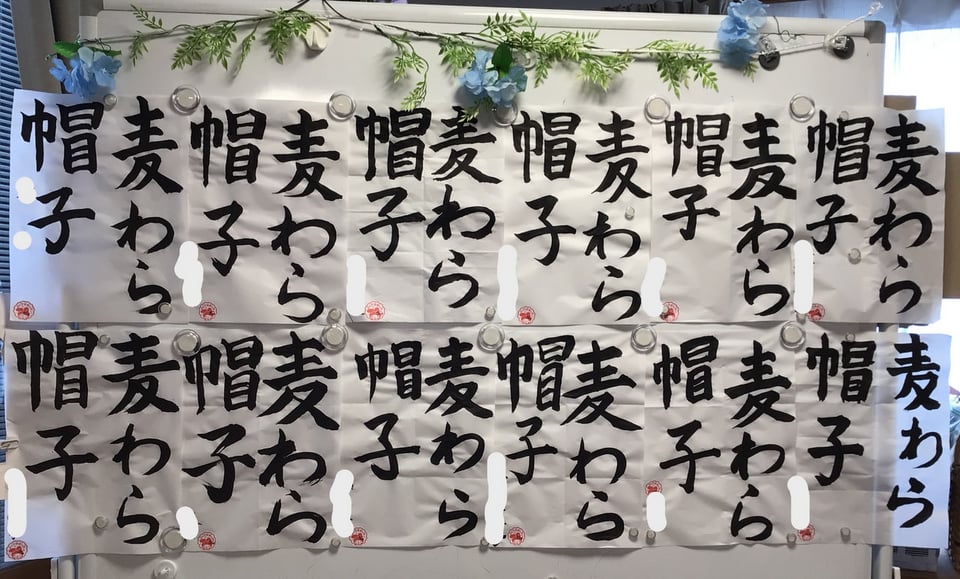 麦わら
帽子
麦わら
帽子
麦わら
帽子
麦わら
帽子
麦わら
帽子
麦わら
帽子
麦わら
帽子
麦わら
帽子
麦わら
帽子
麦わら
帽子
麦わら
帽子
麦わら
帽子